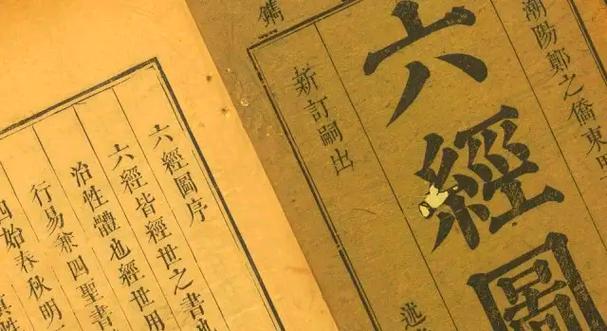 潮陽鄭之僑東
六經圖
新訂嗣出 述
鐫
六經圖序
六經皆經世之書也
治性體也經世用
行易兼四聖書
四始春秋明